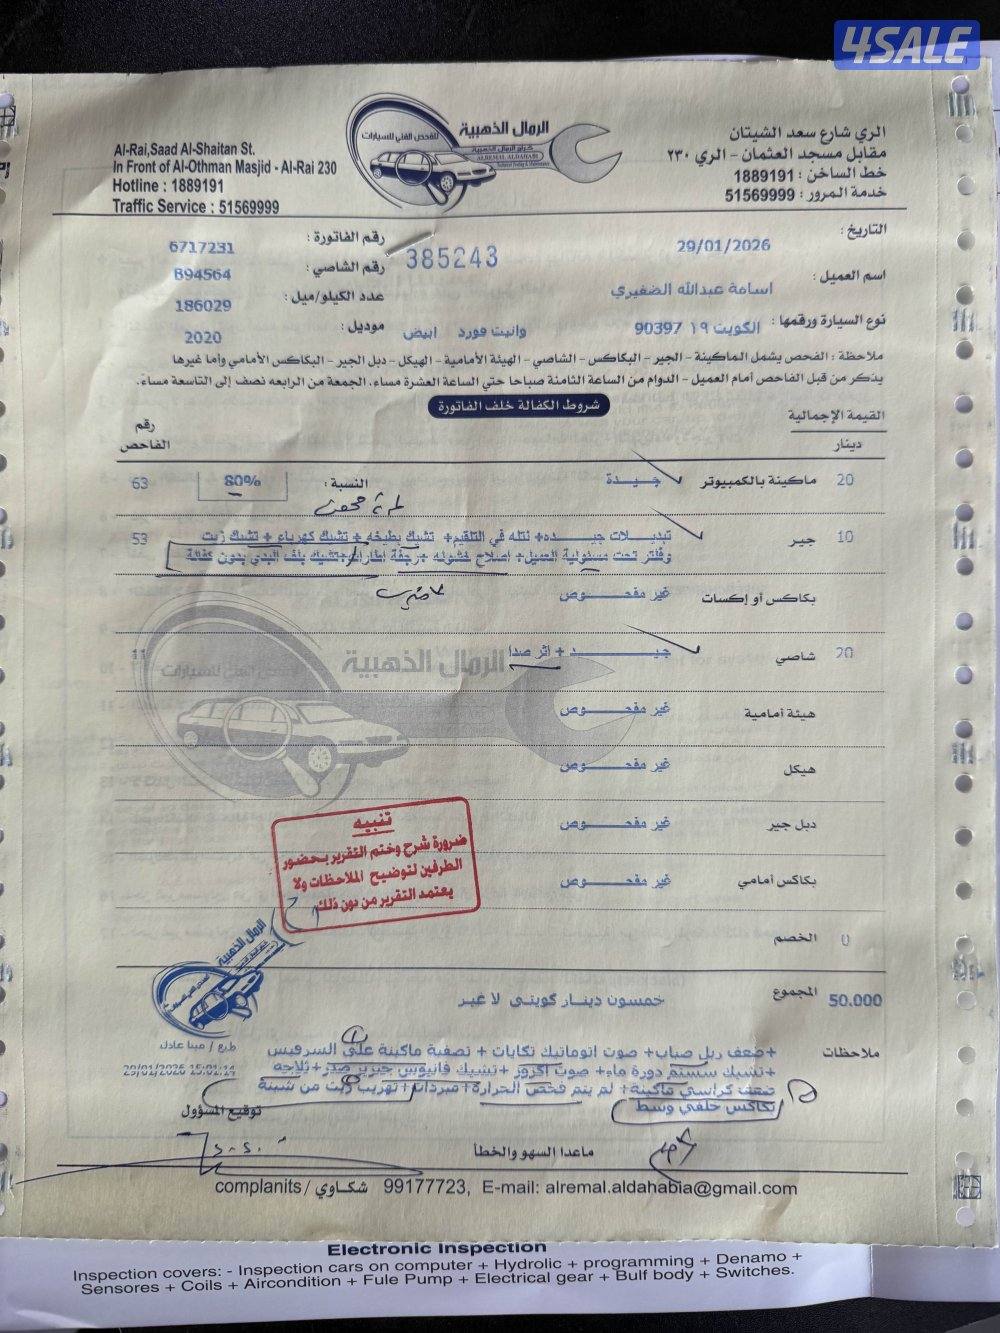 4SALE
Al-Rai,Saad Al-Shaitan St.
In Front of Al-Othman Masjid - Al-Rai 230
Hotline : 1889191
Traffic Service : 51569999
الرمال الذهبية
للفحص الفني للسيارات
كراج الرمال الذهبية
ALREMAL ALDAHABI
الري شارع سعد الشيتان
مقابل مسجد العثمان - الري ٢٣٠
خط الساخن : 1889191
خدمة المرور : 51569999
التاريخ : 29/01/2026
رقم الفاتورة : 6717231
385243
رقم الشاصي : B94564
اسم العميل : اسامة عبدالله الضفيري
عدد الكيلو/ميل : 186029
نوع السيارة ورقمها : الكويت ١٩ 90397 وانيت فورد ابيض
موديل : 2020
ملاحظة : الفحص يشمل الماكينة - الجير - البكاكس - الشاصي - الهيئة الأمامية - الهيكل - دبل الجير - البكاكس الأمامي وأما غيرها
يذكر من قبل الفاحص أمام العميل - الدوام من الساعة الثامنة صباحا حتى الساعة العشرة مساء. الجمعة من الرابعه نصف إلى التاسعة مساء.
شروط الكفالة خلف الفاتورة
القيمة الإجمالية
دينار
رقم الفاحص
20 ماكينة بالكمبيوتر جيدة النسبة : 80% 63
10 جير تبديلات جيده+ نتله في التلقيم+ تشيك بطيخه+ تشيك كهرباء + تشيك زيت 53
وفلتر تحت مسئولية العميل+ اصلاح خشونه +رجفة اطارات+تشيك بلف البدي بدون كفالة
بكاكس أو إكسات غير مفحوص
20 شاصي جيد + اثر صدا 11
هيئة أمامية غير مفحوص
هيكل غير مفحوص
دبل جير غير مفحوص
بكاكس أمامي غير مفحوص
تنبيه
ضرورة شرح وختم التقرير بحضور
الطرفين لتوضيح الملاحظات ولا
يعتمد التقرير من دون ذلك
0 الخصم
الرمال الذهبية
50.000 المجموع خمسون دينار كويتى لا غير
ملاحظات +ضعف ربل صباب+ صوت اتوماتيك تكايات + تصفية ماكينة على السرفيس
+تشيك سستم دورة ماء+ صوت اكزوز +تشيك فانيوس جنزير صدر+ ثلاجه
ضعف كراسي ماكينة+ لم يتم فحص الحراره+ مبردات+ تهريب زيت من شيبة
بكاكس خلفي وسط
طبع / مينا عادل
29/01/2026 15:01:14
توقيع المسؤول
ماعدا السهو والخطأ
complanits / شكاوي 99177723, E-mail: alremal.aldahabia@gmail.com
Electronic Inspection
Inspection covers: - Inspection cars on computer + Hydrolic + programming + Denamo +
Sensores + Coils + Aircondition + Fule Pump + Electrical gear + Bulf body + Switches.